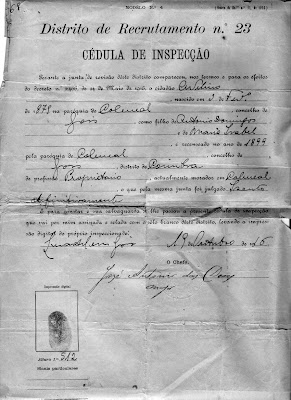 MODELO N.º 4
Distrito de Recrutamento n.º 23
CÉDULA DE INSPECÇÃO
Perante a junta de revisão dêste distrito compareceu, nos termos e para os efeitos
do decreto de de Maio de o cidadão
nascido em 5 de
de 879 na paróquia de Colmeal, concelho de
Goes, como filho de António Domingos
e de Maria Isabel, e recenseado no ano de 1899
pela paróquia de Colmeal, concelho de
Goes, distrito de Coimbra,
de profissão Proprietário, actualmente morador em Colmeal
o que pela mesma junta foi julgado Isento
definitivamente
E para constar e sua salvaguarda se lhe passou a presente cédula de inspecção
que vai por mim assinada e selada com o sêlo branco dêste distrito, levando a impres-
são digital do próprio inspeccionado.
Quartel em Goes 13 de Outubro de 1916
O Chefe,
José António da
Impressão digital
Altura 1m,
Sinais particulares